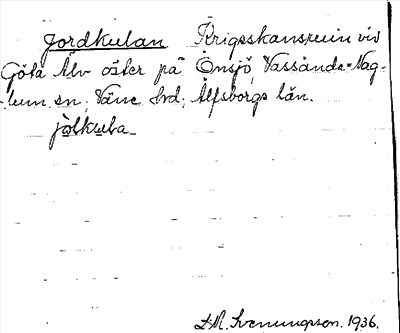 Jordkulan Krigsskansruin vid
Göta Älv öster på Önsjö, Vassända-Nag-
lum sn; Väne hrd; Älfsborgs län.
jolkula
D.M. Svenungsson. 1936.